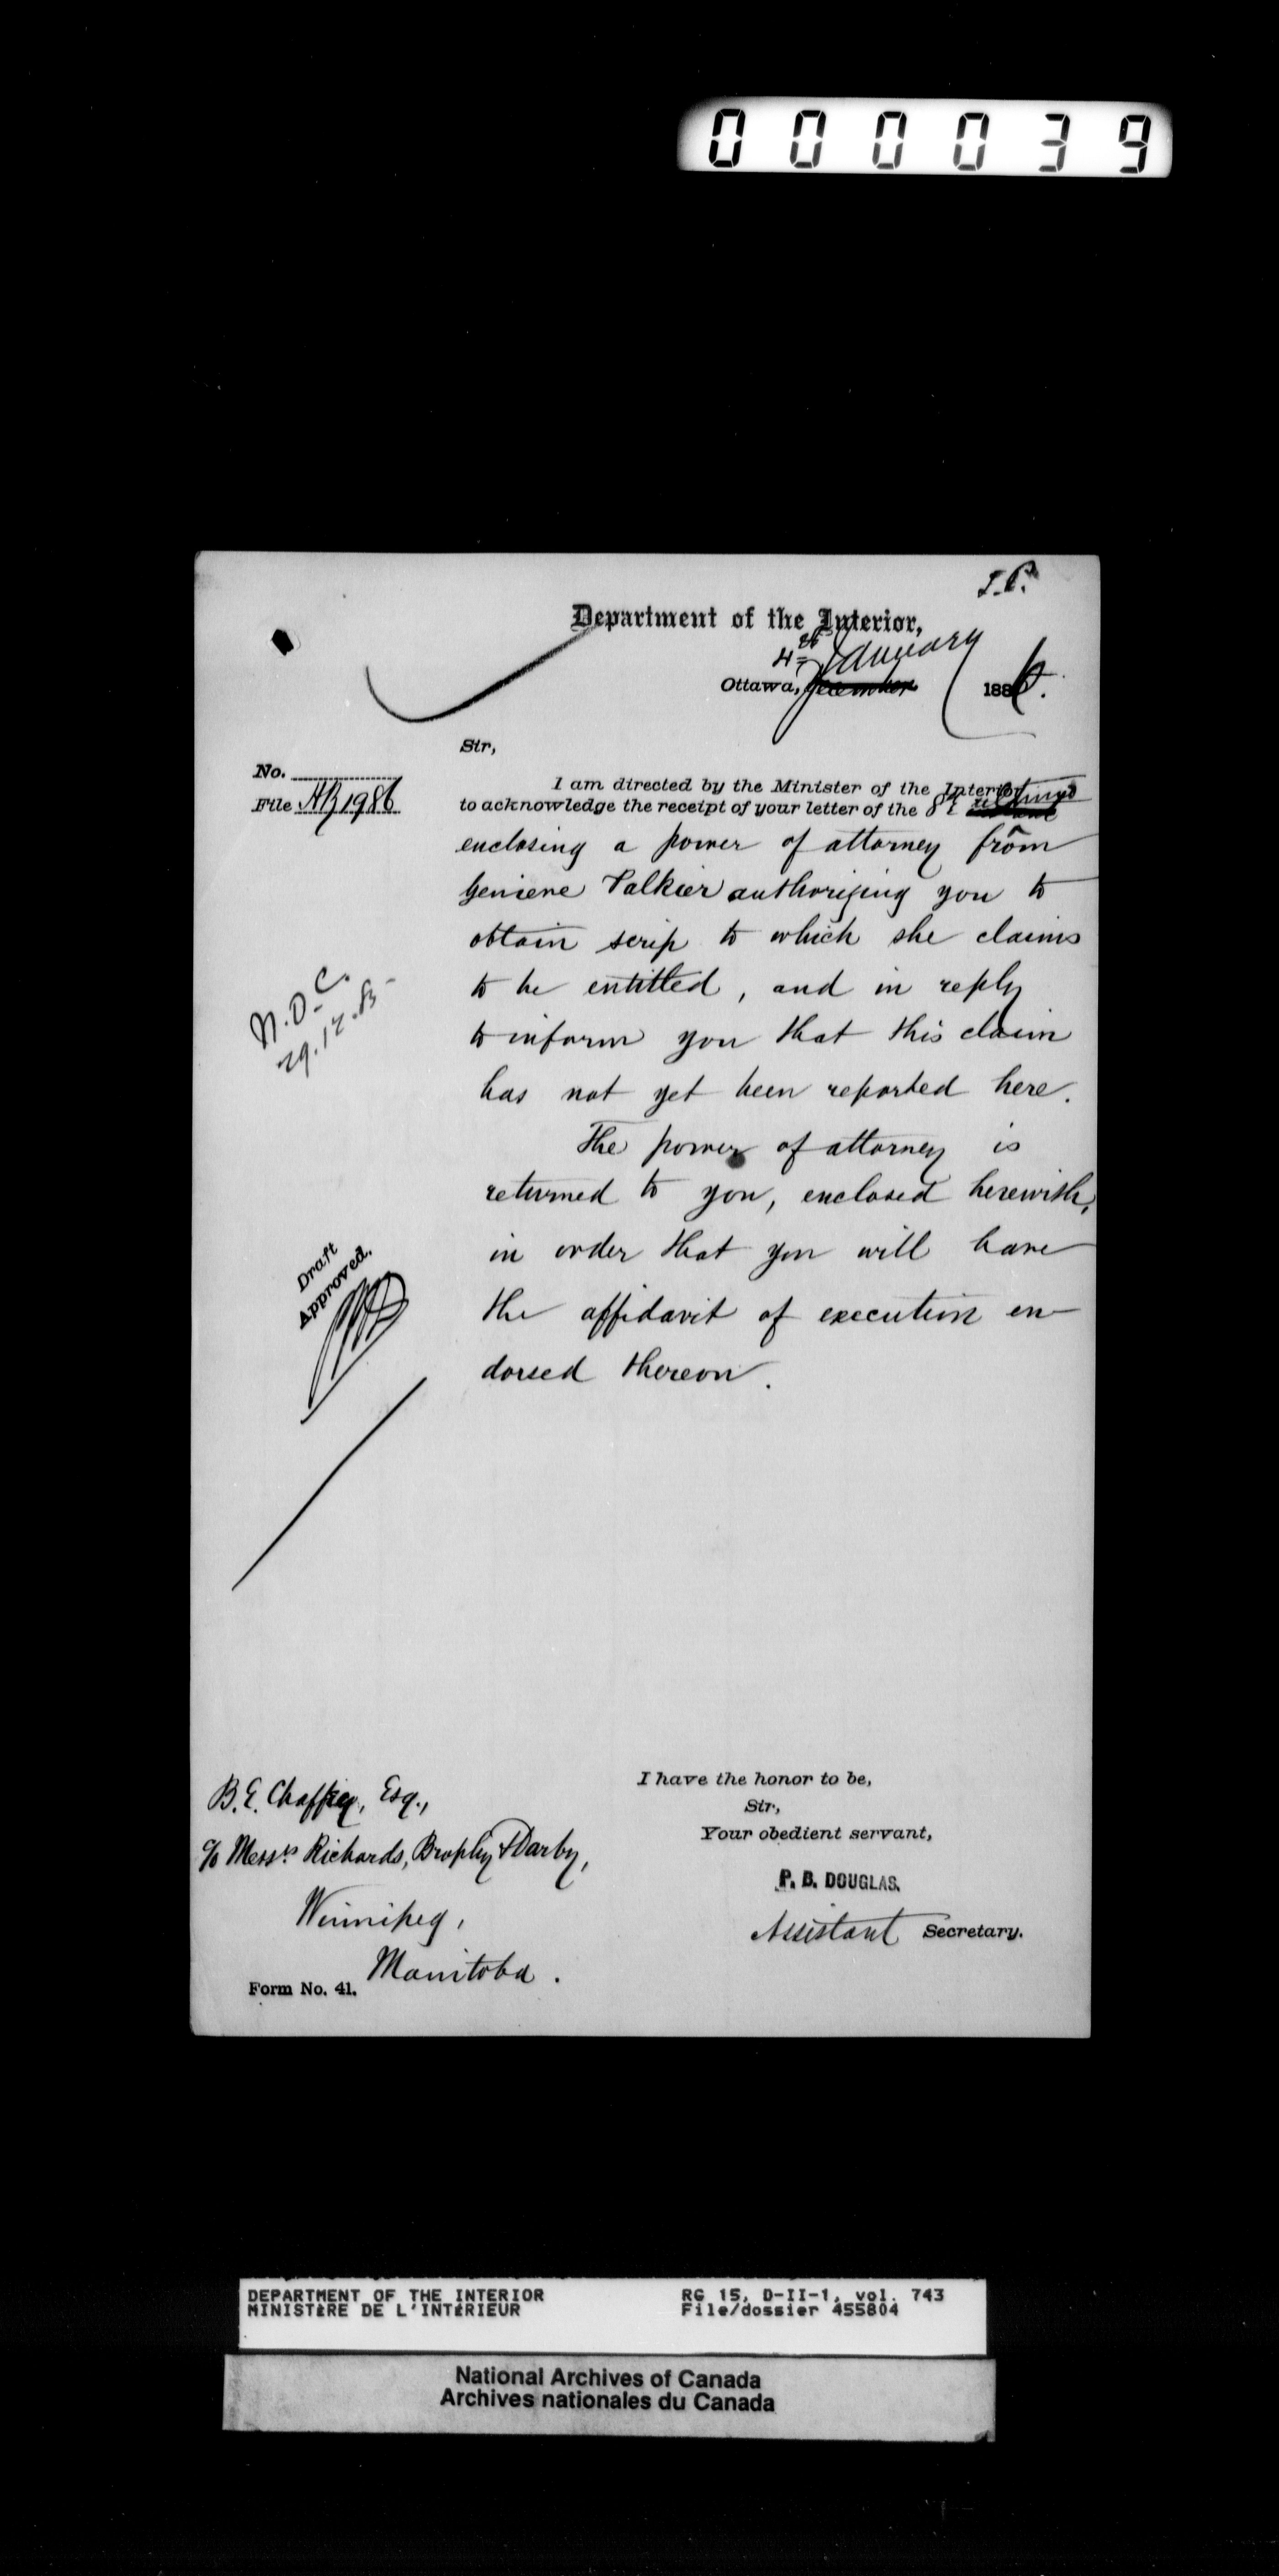 000039
I.P.
Department of the Interior,
4th January
Ottawa, December 1886.
Sir,
No.
File HB 1986
I am directed by the Minister of the Interior
to acknowledge the receipt of your letter of the 8th ultimo
enclosing a power of attorney from
Geniene Valkier authorizing you to
obtain scrip to which she claims
to be entitled, and in reply
to inform you that this claim
has not yet been reported here.
The power of attorney is
returned to you, enclosed herewith,
in order that you will have
the affidavit of execution en-
dorsed thereon.
N.O.C.
29.12.85
Draft
Approved.
I have the honor to be,
Sir,
Your obedient servant,
P. B. DOUGLAS.
Assistant Secretary.
B.E. Chaffey, Esq.,
c/o Messrs Richards, Brophy & Darby,
Winnipeg,
Manitoba.
Form No. 41.
DEPARTMENT OF THE INTERIOR RG 15, D-II-1, vol. 743
MINISTÈRE DE L'INTÉRIEUR File/dossier 455804
National Archives of Canada
Archives nationales du Canada